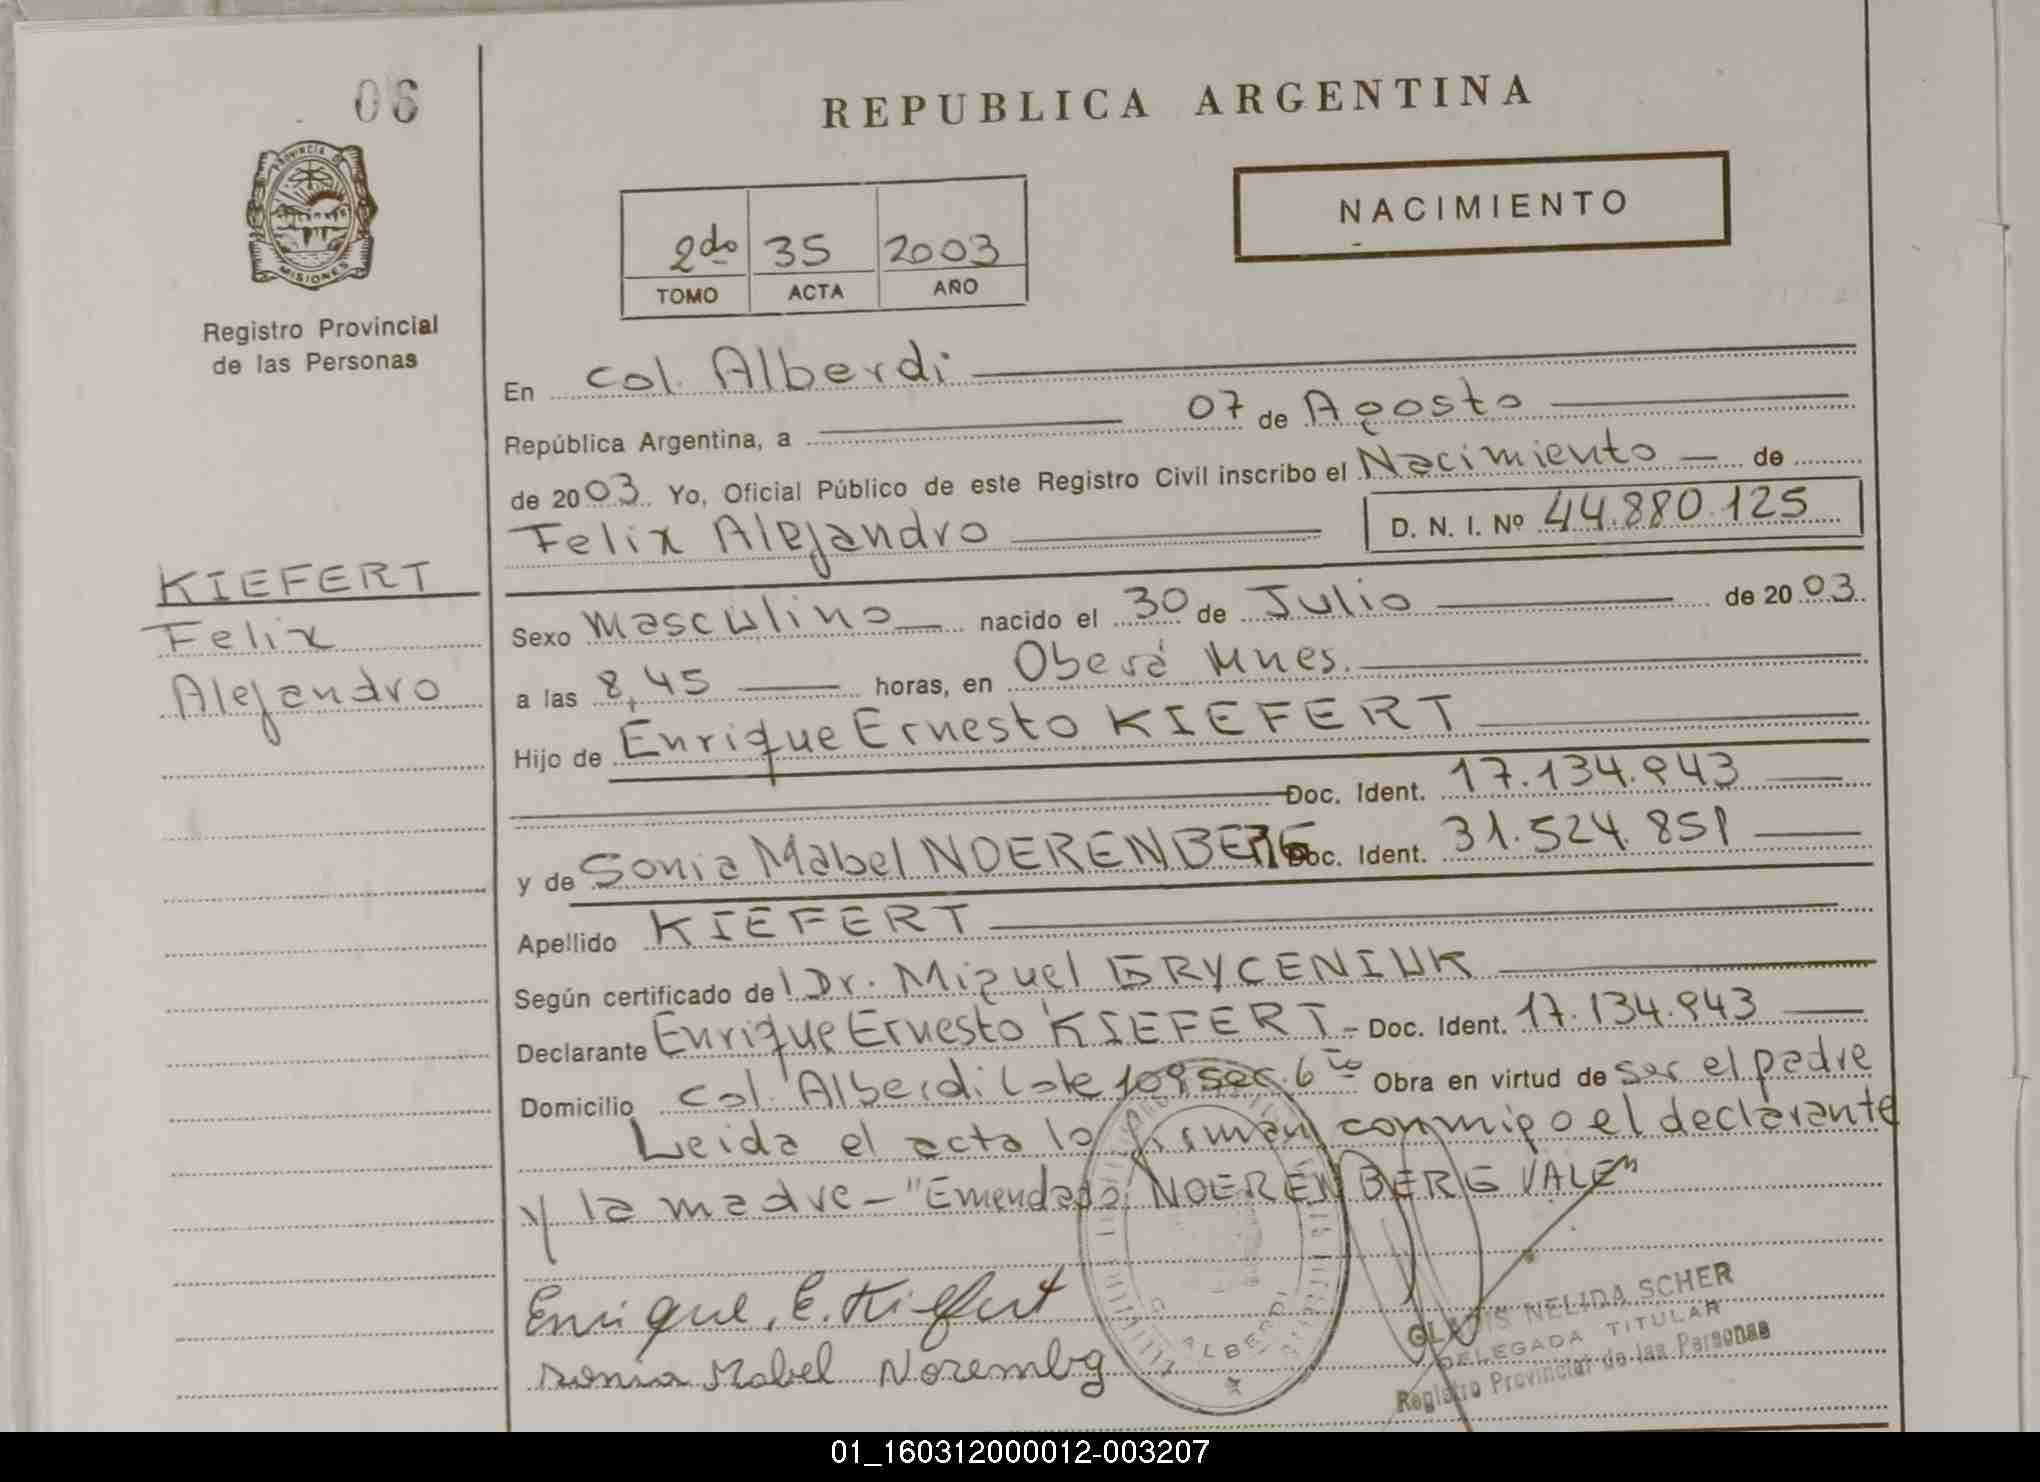 06
REPUBLICA ARGENTINA
PROVINCIA DE
MISIONES
NACIMIENTO
2do 35 2003
TOMO ACTA AÑO
Registro Provincial
de las Personas
En Col. Alberdi
República Argentina, a 07 de Agosto
de 2003 Yo, Oficial Público de este Registro Civil inscribo el Nacimiento de
Felix Alejandro D. N. I. Nº 44.880.125
KIEFERT
Felix
Alejandro
Sexo Masculino nacido el 30 de Julio de 2003
a las 8,45 horas, en Oberá Mnes.
Hijo de Enrique Ernesto KIEFERT
Doc. Ident. 17.134.943
y de Sonia Mabel NOERENBERG Doc. Ident. 31.524.851
Apellido KIEFERT
Según certificado de Dr. Miguel GRYCENIUK
Declarante Enrique Ernesto KIEFERT - Doc. Ident. 17.134.943
Domicilio Col. Alberdi Lote 109 sec. 6ta Obra en virtud de ser el padre
Leida el acta lo firman conmigo el declarante
y la madre - "Emendado NOERENBERG VALE"
Enrique. E. Kiefert
Sonia Mabel Noremberg
ALBERDI
GLADIS NELIDA SCHER
DELEGADA TITULAR
Registro Provincial de las Personas
01_160312000012-003207